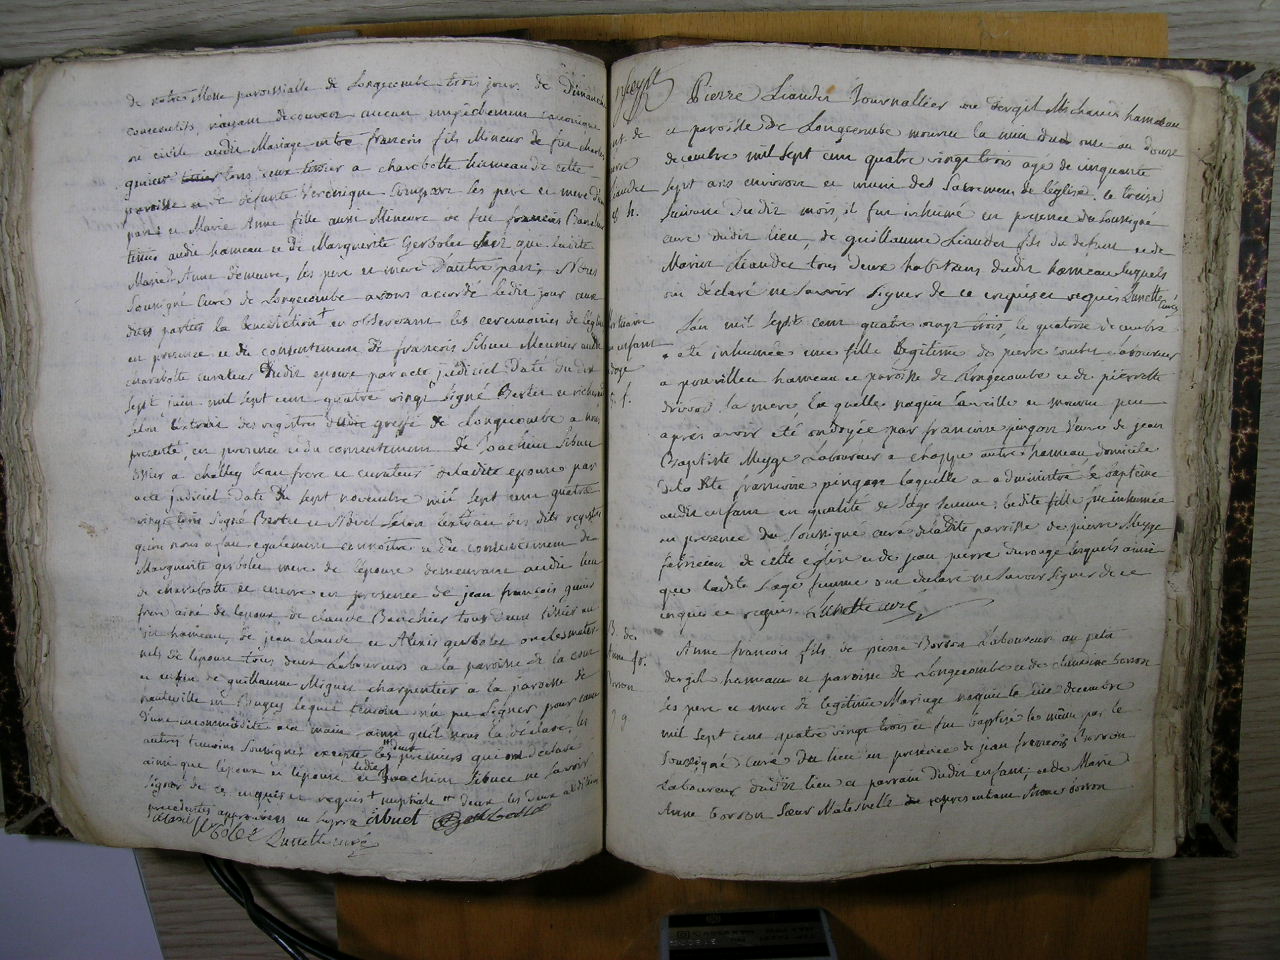 de notre Messe paroissialle de Longecombe trois jours de Dimanche
consecutifs, n'ayant decouvert aucun empechement canonique
ni civile audit Mariage entre francois fils Mineur de feu Charles
quinier tous deux tissier a charabotte hameau de cette
paroisse et de defunte Veronique les pere et mere d'une
part; et Marie Anne fille aussi Mineure de feu francois Banchet
audit hameau et de Marguerite Gerbolet que ladite
Marie Anne demeure, les pere et mere d'autre part; Nous
Soussigné Curé de Longecombe avons accordé ledit jour aux
dites parties la benediction + en observant les ceremonies de l'église
en presence et du consentement de francois Sibuet Meunier audit
charabotte curateur dudit epoux par acte judiciel daté du dix
sept juin mil sept cent quatre vingt signé Bertet et richard
selon l'extrait des registres dudit greffe de Longecombe a nous
presenté, en presence et du consentement de Joachim Sibuet
a challey beau frere et curateur de ladite epouse par
acte judiciel daté du sept novembre mil sept cent quatre
vingt trois signé Bertet et Nivel selon l'extrait des dits registres
qu'on nous a fait egalement connoitre et du consentement de
Marguerite gerbolet mere de l'epouse demeurante audit lieu
de charabotte et encore en presence de jean francois quinier
frere ainé de l'epoux, de claude Banchet tous deux tissier au
dit hameau, de jean claude et Alexis gerbolet oncles mater-
nels de l'epouse tous deux Laboureurs a la paroisse de la cour
et enfin de guillaume Miguet charpentier a la paroisse de
hauteville en Bugey lequel temoin n'a pu signer pour cause
d'une incommodité a la main ainsi qu'il nous l'a déclaré, les
autres temoins soussignés excepté les deux premiers qui ont declaré
ainsi que l'epoux et l'epouse et ledit Joachim Sibuet ne savoir
signer de ce enquis et requis + nuptiale # deux les deux additions
precedentes approuvées
Sibuet
Alexis Gerbolet Lunette curé
Pierre Liandet Journallier au dergit Michaud hameau
et paroisse de Longecombe mourut la nuit du onze au douze
decembre mil sept cent quatre vingt trois agé de cinquante
sept ans environ et muni des Sacremens de l'église. le treize
suivant dudit mois, il fut inhumé en presence du soussigné
curé dudit lieu, de guillaume Liandet fils du defunt et de
Marin Liandet tous deux habitans dudit hameau lesquels
ont declaré ne savoir signer de ce enquis et requis Lunette curé
L'an mil sept cent quatre vingt trois, le quatorze decembre
a eté inhumée une fille legitime de pierre Laboureur
a pouvillieu hameau et paroisse de Longecombe et de pierrette
la mere laquelle naquit la veille et mourut peu
apres avoir eté ondoyée par francoise pingon veuve de jean
Baptiste Mugge Laboureur a chappe autre hameau domicile
de la dite francoise pingon laquelle a administré le baptême
audit enfant en qualité de Sage femme; ladite fille fut inhumée
en presence du soussigné curé de ladite paroisse de pierre Mugge
fabricien de cette eglise et de jean pierre durouge lesquels ainsi
que ladite Sage femme ont declaré ne savoir signer de ce
enquis et requis. Lunette curé
B. de
Anne fr.
Borron
Anne francois fils de pierre Borron Laboureur au petit
dergit hameau et paroisse de Longecombe et de claudine borron
ses pere et mere de legitime Mariage naquit le decembre
mil sept cent quatre vingt trois et fut baptisé le même par le
soussigné curé du lieu en presence de jean francois Borron
Laboureur dudit lieu et parrain dudit enfant; et de Marie
Anne borron Sœur Maternelle representant Anne borron